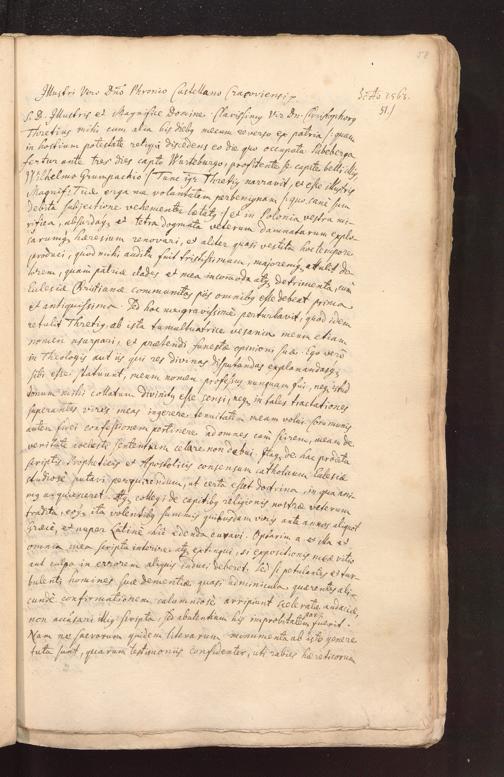 58
Illustri Viro Dno Phronio Castellano Cracoviensi
Scto 1563.
51.
S. D. Illustris et Magnifice Domine. Clarissimus Vir Dn. Christophorus
Thretius mihi cum alia his diebus mecum reverso ex patria /: quam
in hostium potestate reliqui discedens eo die quo occupata Pabeberga
fertur ante tres dies capto Wirteburgo, profitente se capite belli illius
Wilhelmo Grumpachio :/ Tunc igr Thretius narravit, et esse illustris
Magnif: Tuæ erga me voluntatem perbenignam /: quo sane pro
debita subjectione vehementer lætatus :/ et in Polonia vestra mi-
rifica, absurdaq et tetra dogmata veterum damnatarum explo-
sarumq hæresium renovari, et aliter quasi vestita hoc tempore
produci, quod mihi auditu fuit tristissimum, majoremq attulit do-
lorem, quam patriæ clades et mea incommoda atq detrimenta, cum
Ecclesiæ Christianæ communitas piis omnibus esse debeat prima
et antiquissima. Sed hoc me gravissime perturbavit, quod idem
retulit Thretius, ab ista tumultuatrice vesania meum etiam
nomen usurpari, et prætendi funestæ opinioni suæ. Ego vero
in Theologis aut iis qui res divinas disputandas explanandasq
sibi esse statuunt, meum nomen professus nunquam fui, neq istud
donum mihi collatum divinitus esse sensi, neq in tales tractationes
superantes vires meas ingerere tenuitatem meam volui. Communis
autem fidei confessionem pertinere ad omnes cum scirem, meam de
veritate coelesti sententiam celare non debui. Itaq de hac prodita
scriptis Propheticis et Apostolicis consensum catholicum Ecclesiæ
studiose putavi perquirendum, ut certa esset doctrina, in qua ani-
mus acquiesceret. Atq collegi de capitibus religionis nostræ veterum
tradita, eaq ita volentibus summis quibusdam viris ante annos aliquot
Græce, et nuper Latine hic edenda curavi. Optarim a et illa et
omnia mea scripta interire atq extingui, si expositionis meæ vitio
aut culpa in errorem aliquis induci deberet. Sed si petulantes et tur-
bulenti homines suæ dementiæ quasi adminicula quærentes ali-
cunde confirmationem calumniose arripiunt sceleratæ audaciæ,
non accusari illius scripta, sed abutentium his improbitatem par fuerit.
Nam ne sacrorum quidem literarum monumenta ab isto genere
tuta sunt, quarum testimoniis confidenter, uti rabies hæreticorum